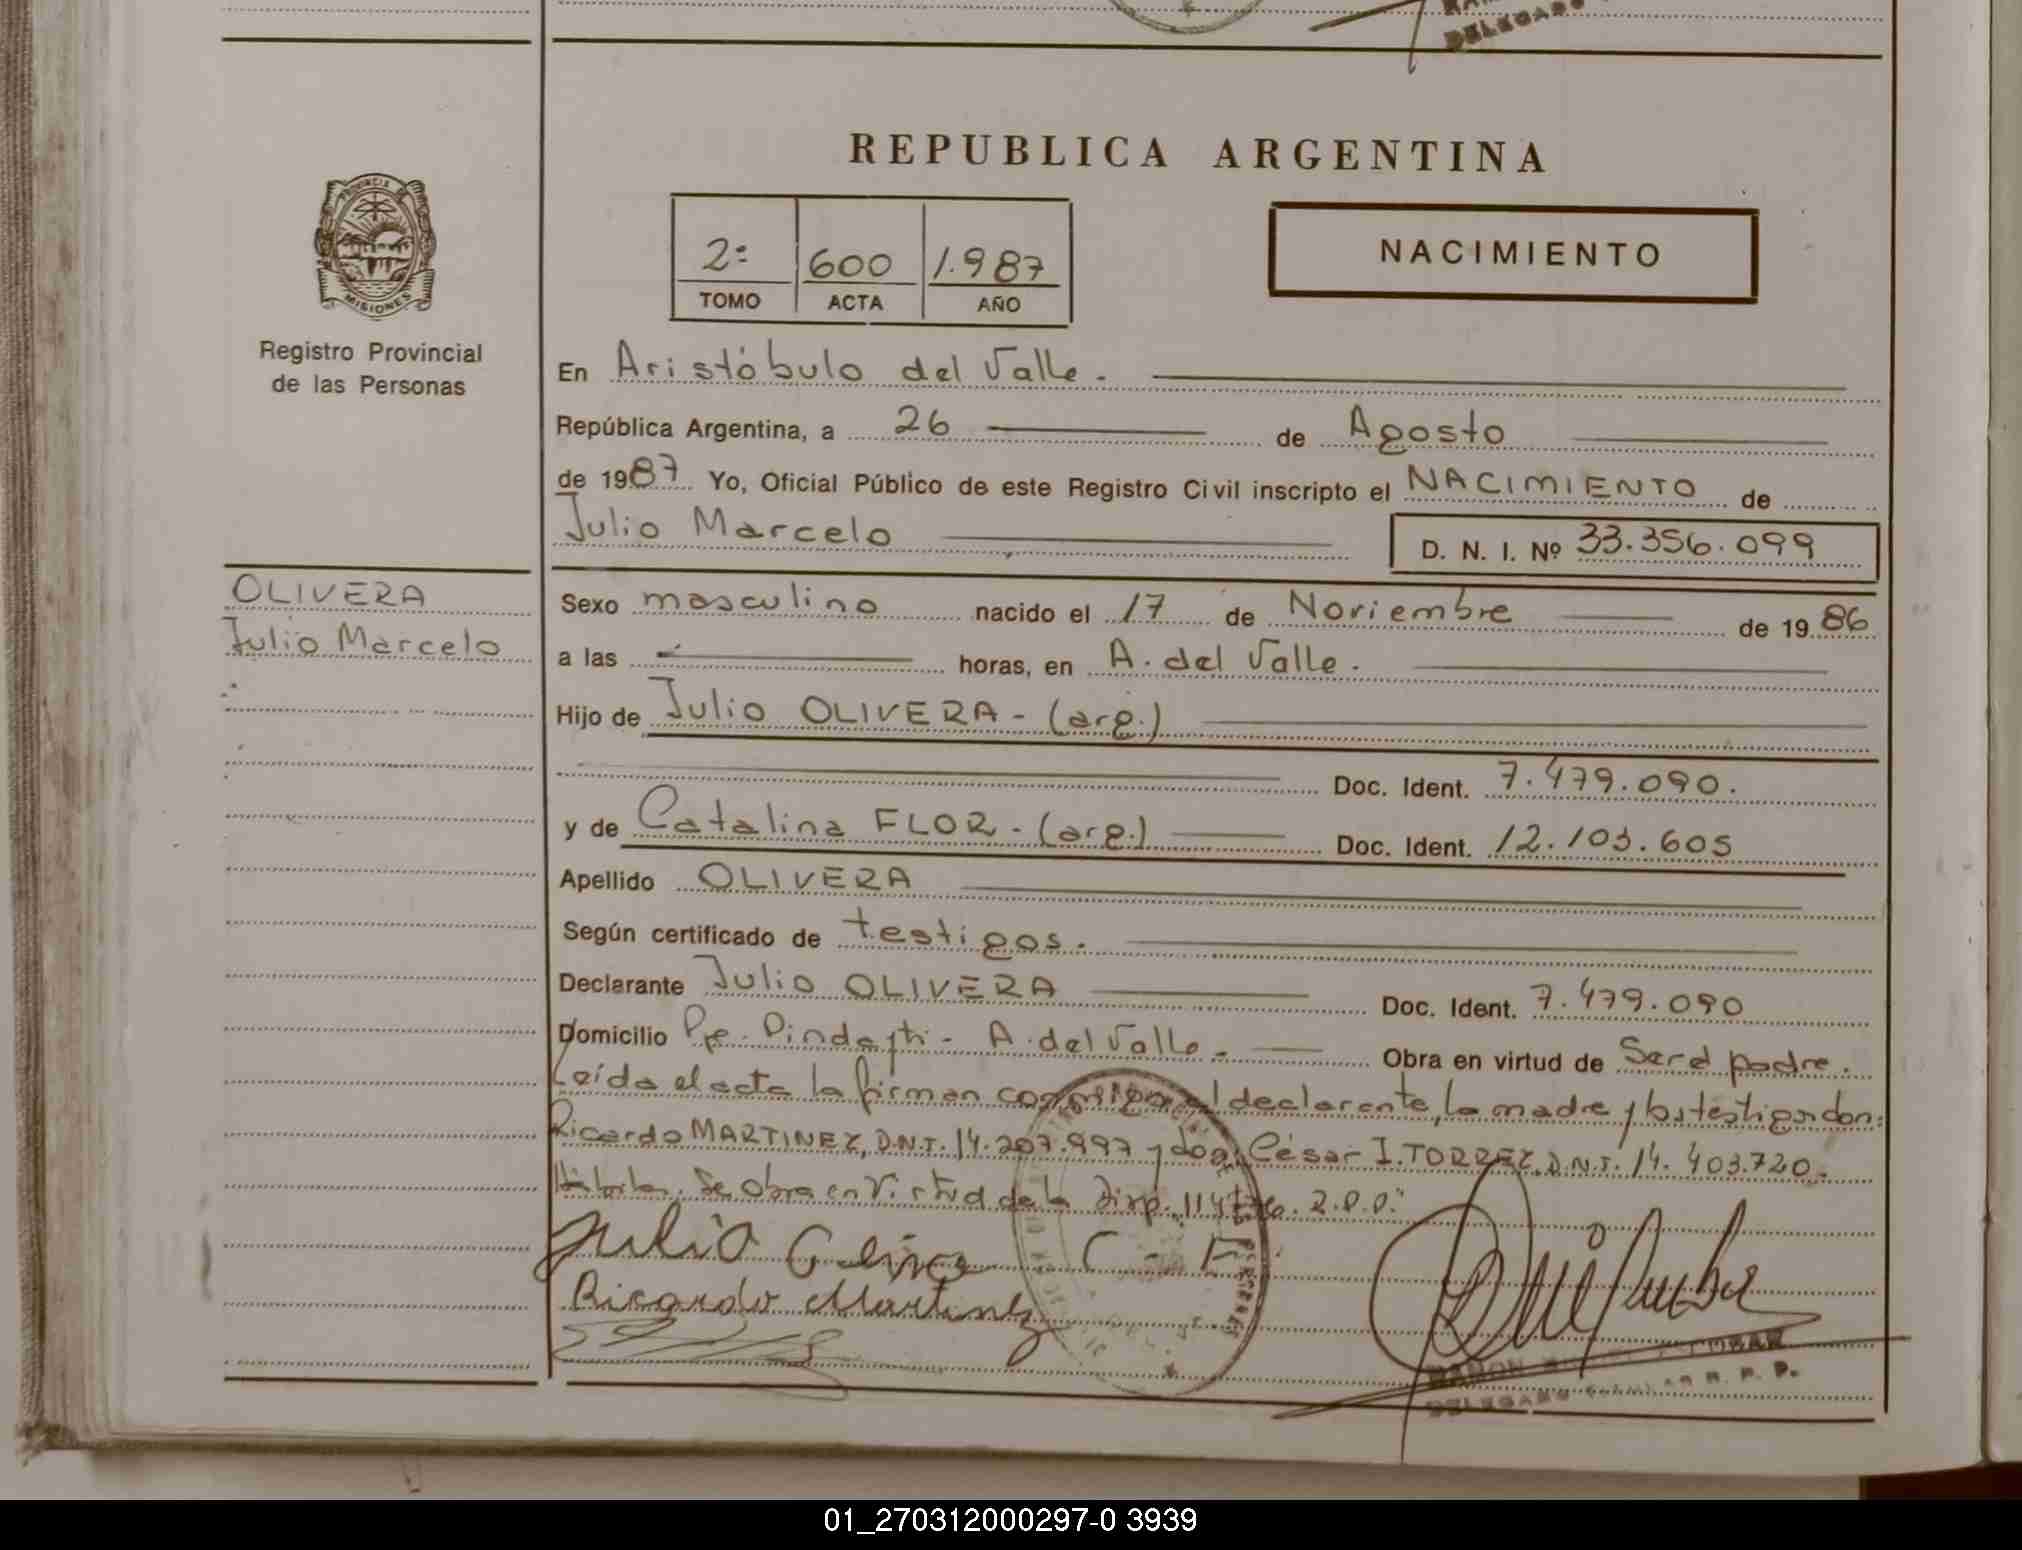 DELEGADO
REPUBLICA ARGENTINA
2º 600 1.987
TOMO ACTA AÑO
NACIMIENTO
PROVINCIA DE
MISIONES
Registro Provincial
de las Personas
En Aristóbulo del Valle.
República Argentina, a 26 de Agosto
de 1987 Yo, Oficial Público de este Registro Civil inscripto el NACIMIENTO de
Julio Marcelo D. N. I. Nº 33.356.099
OLIVERA
Julio Marcelo
Sexo masculino nacido el 17 de Noviembre de 1986
a las horas, en A. del Valle.
Hijo de Julio OLIVERA - (arg.)
Doc. Ident. 7.479.090.
y de Catalina FLOR - (arg.) Doc. Ident. 12.103.605
Apellido OLIVERA
Según certificado de testigos.
Declarante Julio OLIVERA Doc. Ident. 7.479.090
Domicilio Pje. Pindayti - A. del Valle - Obra en virtud de Ser el padre.
Leída el acta la firman conmigo el declarante, la madre y los testigos don:
Ricardo MARTINEZ, D.N.I. 14.207.997 y don César I. TORREZ, D.N.I. 14.403.720.
Se obra en virtud de la Disp. 114 R.P.P.
Julio Olivera C - F
Ricardo Martinez
RAMON ESCOBAR
DELEGADO R. P. P.
01_270312000297-0 3939